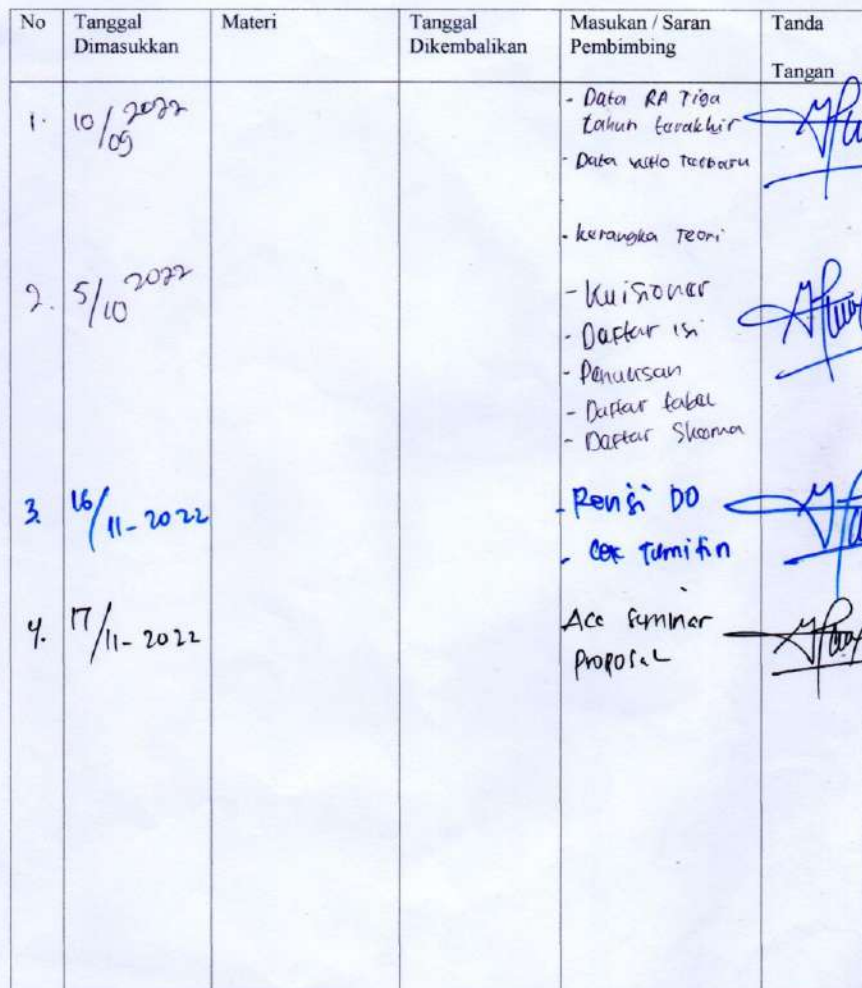 No Tanggal Dimasukkan Materi Tanggal Dikembalikan Masukan / Saran Pembimbing Tanda Tangan
1. 10/09 2022
- Data RA Tiga
tahun terakhir
- Data WHO Terbaru
- kerangka Teori
2. 5/10 2022
- Kuisioner
- Daftar isi
- Penulisan
- Daftar tabel
- Daftar Skema
3. 16/11-2022
- Revisi DO
- cek Turnitin
4. 17/11-2022
Acc Seminar
Proposal